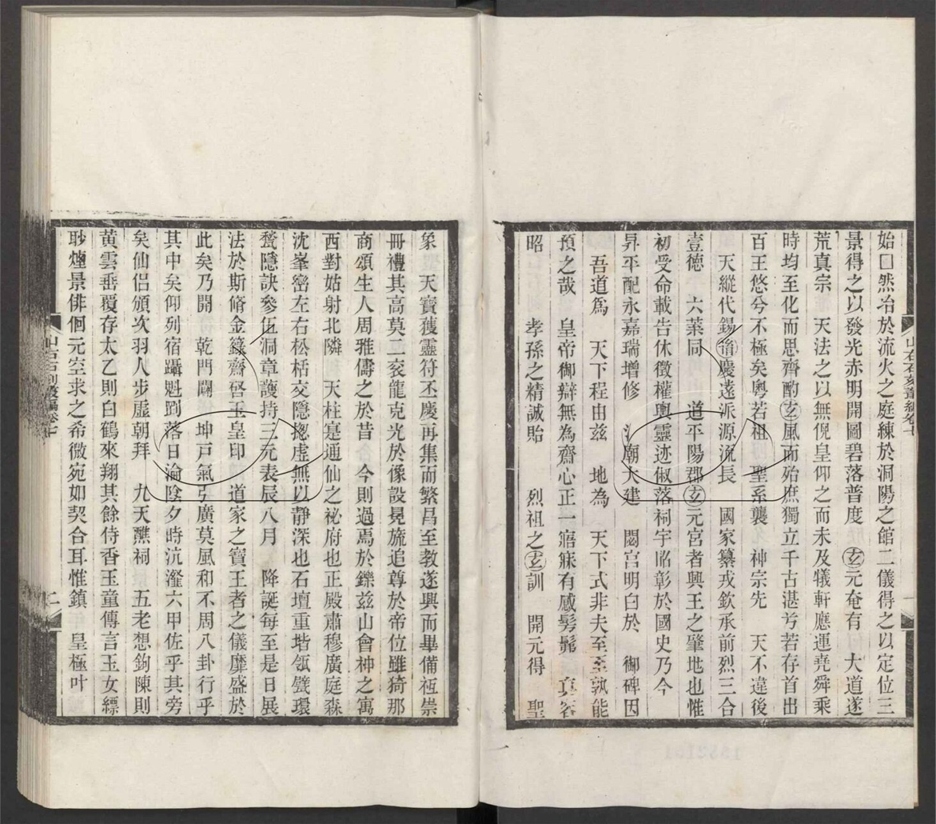 始□然冶於流火之庭練於洞陽之館二儀得之以定位三
景得之以發光赤明開圖碧落普度　玄元奄有　大道遂
荒真宗　天法之以無倪皇仰之而未及犧軒應運堯舜乘
時均至化而思齊酌玄風而殆庶獨立千古湛兮若存首出
百王悠兮不極矣粵若祖　聖系襲　神宗先　天不違後
天縱代錫慶遠派源流長　國家纂戎欽承前烈三合
壹德　六葉同　道平陽郡玄元宮者興王之肇地也惟
初受命載告休徵權輿靈迹俶落祠宇昭彰於國史乃今
昇平配永嘉瑞增修　廟大建　閟宮明白於　御碑因
吾道為　天下程由茲　地為　天下式非夫至至孰能
預之哉　皇帝御辯無為齋心正一寤寐有感髣髴　真容
昭　孝孫之精誠貽　烈祖之玄訓　開元得　聖
象　天寶獲靈符丕慶再集而繁昌至教遂興而畢備祗崇
冊禮其高莫二袞龍克光於像設冕旒追尊於帝位雖猗那
商頌生人周雅儔之於昔　今則過焉於鑠茲山會神之寓
西對姑射北隣　天柱寔通仙之祕府也正殿肅穆廣庭森
沈峯巒左右松栝交隱摠虛無以靜深也石壇重堦瓴甓環
甃隱訣參伍洞章護持三元表辰八月　降誕每至是日展
法於斯脩金籙齋啓玉皇印　道家之寶王者之儀靡盛於
此矣乃開　乾門闢　坤戶氣引廣莫風和不周八卦行乎
其中矣仰列宿躡魁罡落日淪陰夕時沆瀣六甲佐乎其旁
矣仙侶頒次羽人步虛朝拜　九天醮祠　五老想鉤陳則
黃雲垂覆存太乙則白鶴來翔其餘侍香玉童傳言玉女縹
眇煙景俳佪元空求之希微宛如契合耳惟鎮　皇極叶